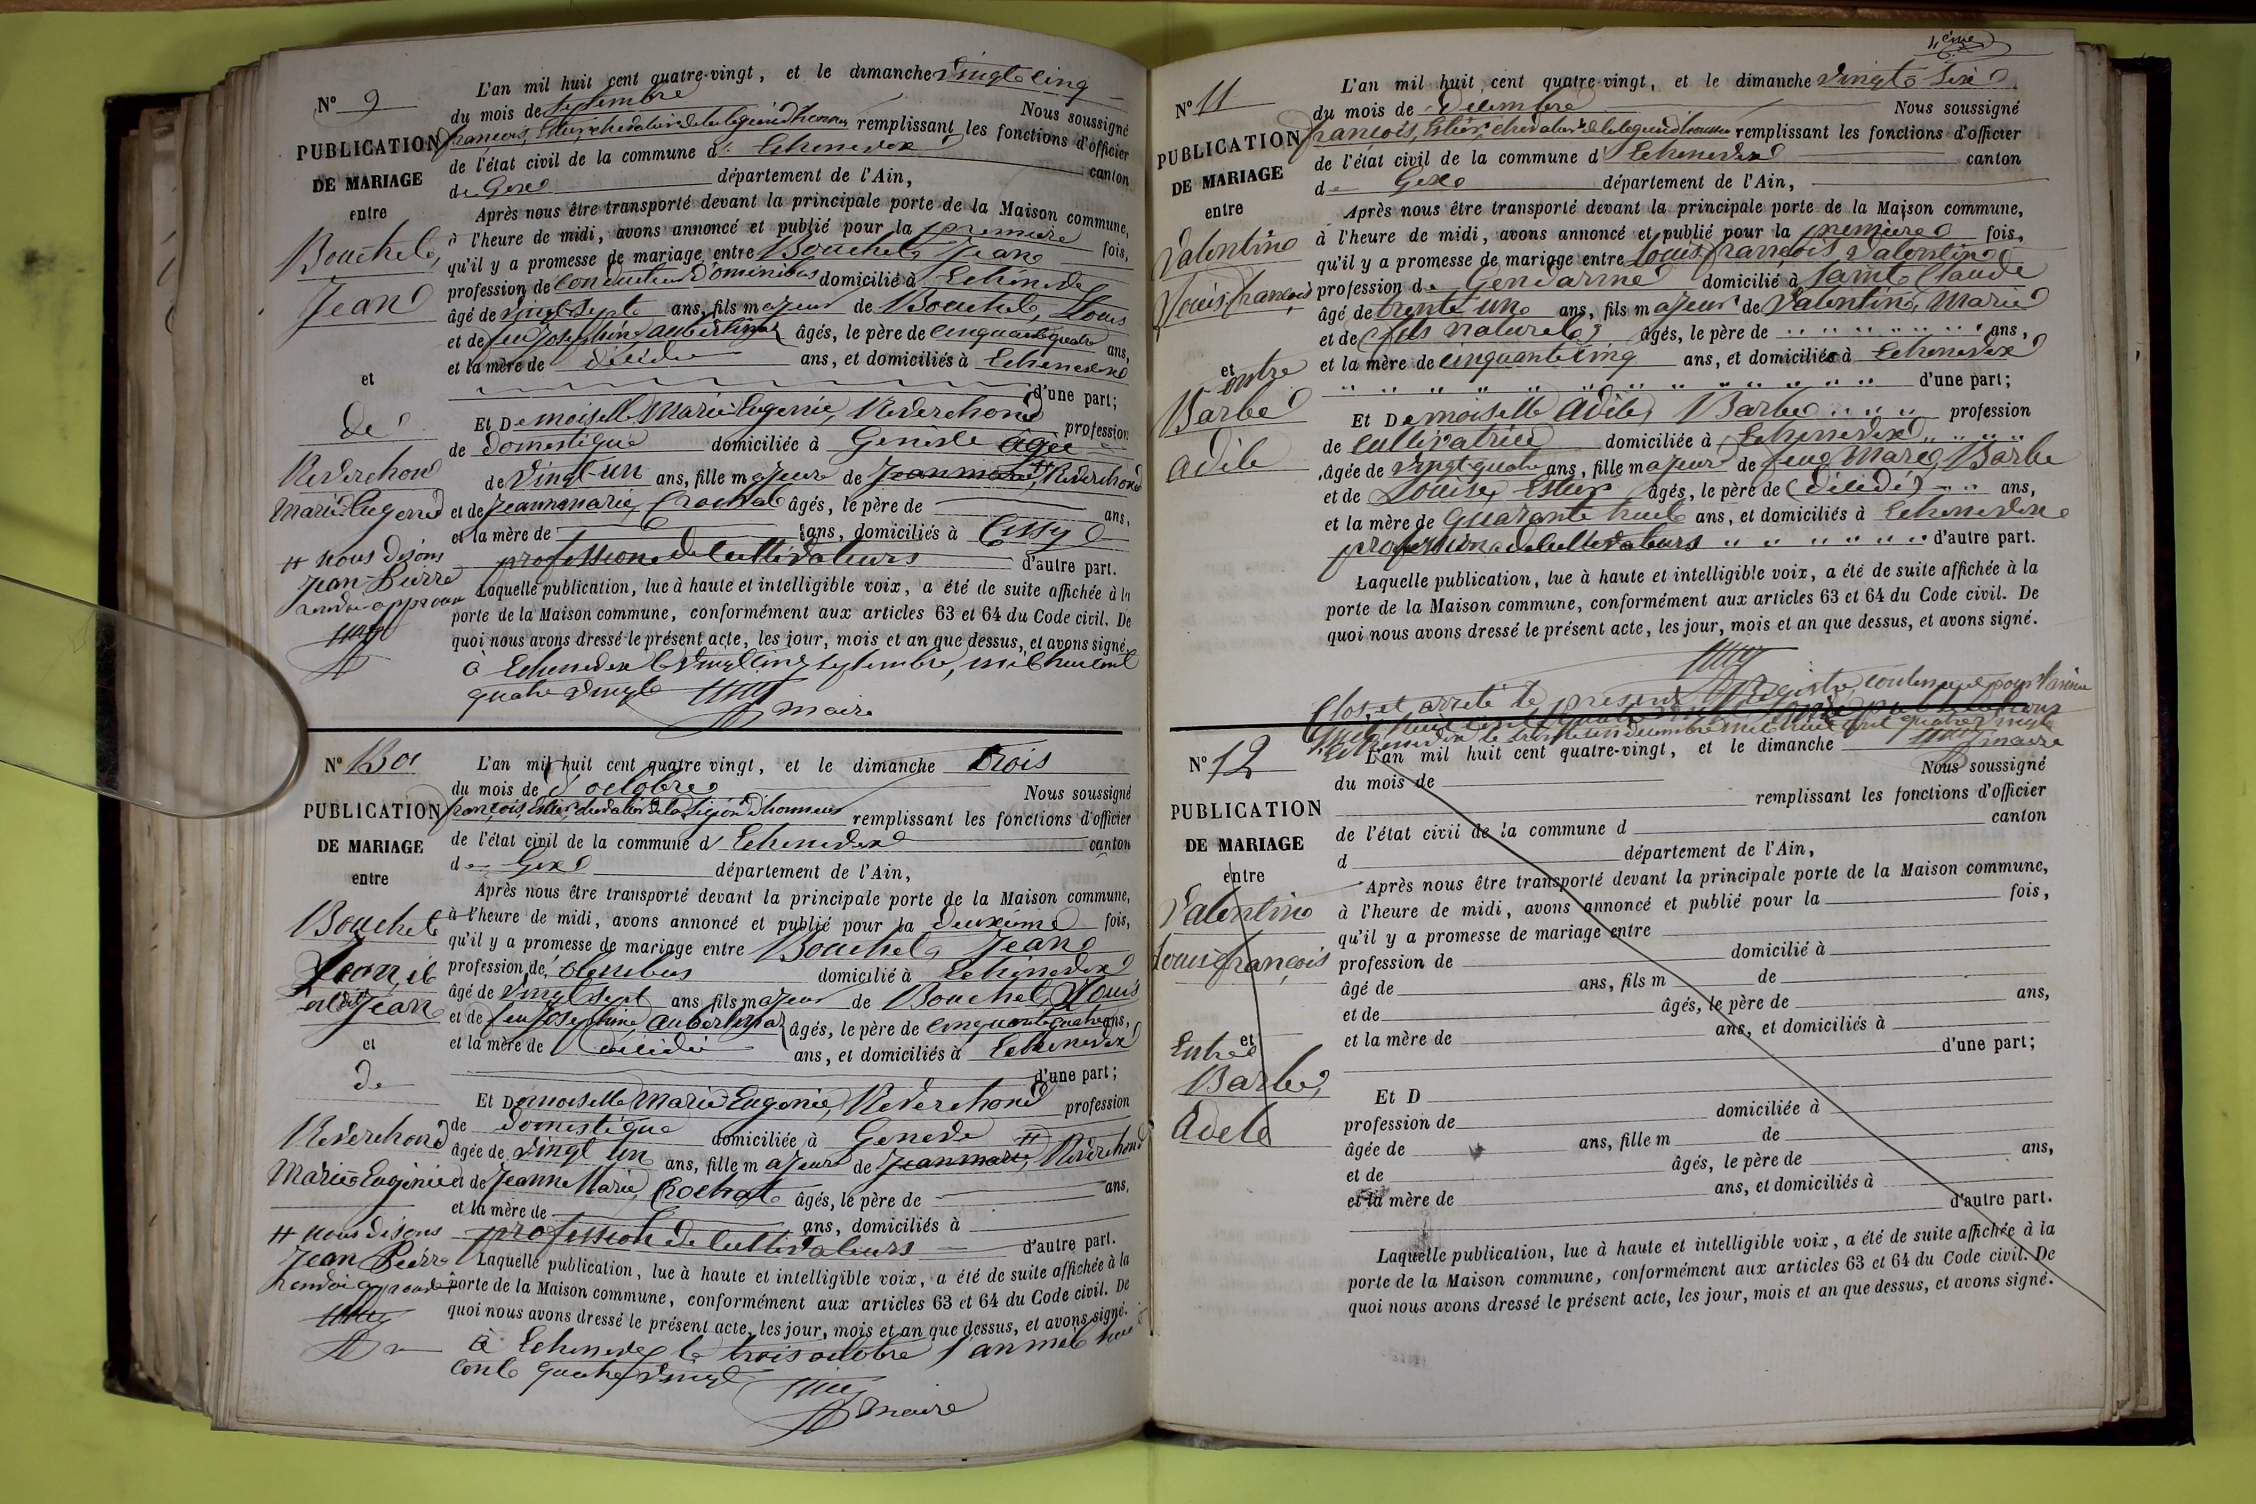 N° 9
PUBLICATION
DE MARIAGE
entre
Bouchet,
Jean
et
de
Reverchon
Marie Eugenie
# nous disons
Jean-Pierre
renvoi approuvé
L'an mil huit cent quatre-vingt, et le dimanche vingt cinq
du mois de septembre Nous soussigné
françois, Estier chevalier de la légion d'honneur remplissant les fonctions d'officier
de l'état civil de la commune d' Echenevex canton
de Gex département de l'Ain,
Après nous être transporté devant la principale porte de la Maison commune,
à l'heure de midi, avons annoncé et publié pour la premiere fois,
qu'il y a promesse de mariage entre Bouchet, Jean
profession de conducteur d'ominibus domicilié à Echenevex
âgé de vingt sept ans, fils majeur de Bouchet, Louis
et de feu Josephine âgés, le père de cinquante quatre ans,
et la mère de décédée ans, et domiciliés à Echenevex
d'une part;
Et Demoiselle Marie Eugenie, Reverchond profession
de domestique domiciliée à Genève âgée
de vingt-un ans, fille majeure de Jean marie, # Reverchond
et de Jeanne marie, Crochat âgés, le père de ans,
et la mère de ans, domiciliés à Cessy
profession de cultivateurs d'autre part.
Laquelle publication, lue à haute et intelligible voix, a été de suite affichée à la
porte de la Maison commune, conformément aux articles 63 et 64 du Code civil. De
quoi nous avons dressé le présent acte, les jour, mois et an que dessus, et avons signé.
à Echenevex le vingt cinq septembre, mil huit cent
quatre vingt
maire
N° 10
PUBLICATION
DE MARIAGE
entre
Bouchet
Jean
et
de
Reverchond
Marie Eugénie
# nous disons
Jean Pierre
renvoi approuvé
L'an mil huit cent quatre vingt, et le dimanche trois
du mois de d'octobre Nous soussigné
françois, Estier chevalier de la Légion d'honneur remplissant les fonctions d'officier
de l'état civil de la commune d' Echenevex canton
de Gex département de l'Ain,
Après nous être transporté devant la principale porte de la Maison commune,
à l'heure de midi, avons annoncé et publié pour la deuxième fois,
qu'il y a promesse de mariage entre Bouchet, Jean
profession de omnibus domicilié à Echenevex
âgé de vingt sept ans fils majeur de Bouchet, Louis
et de feu Josephine âgés, le père de cinquante quatre ans,
et la mère de décédée ans, et domiciliés à Echenevex
d'une part;
Et Demoiselle Marie Eugenie, Reverchond profession
de domestique domiciliée à Genève
âgée de vingt un ans, fille majeure de Jean marie, # Reverchond
et de Jeanne Marie, Crochat âgés, le père de ans,
et la mère de ans, domiciliés à
profession de cultivateurs d'autre part.
Laquelle publication, lue à haute et intelligible voix, a été de suite affichée à la
porte de la Maison commune, conformément aux articles 63 et 64 du Code civil. De
quoi nous avons dressé le présent acte, les jour, mois et an que dessus, et avons signé.
à Echenevex le trois octobre l'an mil huit
cent quatre vingt
maire
4ème
N° 11
PUBLICATION
DE MARIAGE
entre
Valentin
Louis françois
et
entre
Barbe
Adèle
L'an mil huit cent quatre-vingt, et le dimanche vingt six
du mois de Décembre Nous soussigné
françois, Estier chevalier de la legion d'honneur remplissant les fonctions d'officier
de l'état civil de la commune d' Echenevex canton
de Gex département de l'Ain,
Après nous être transporté devant la principale porte de la Maison commune,
à l'heure de midi, avons annoncé et publié pour la première fois,
qu'il y a promesse de mariage entre Louis françois Valentin
profession de Gendarme domicilié à Saint Claude
âgé de trente un ans, fils majeur de Valentin, Marie
et de (fils naturel) âgés, le père de ans,
et la mère de cinquante cinq ans, et domiciliés à Echenevex
d'une part;
Et Demoiselle Adèle, Barbe profession
de cultivatrice domiciliée à Echenevex
âgée de vingt quatre ans, fille majeure de feu Marc, Barbe
et de Louise, Estier âgés, le père de (décédé) ans,
et la mère de quarante huit ans, et domiciliés à Echenevex
profession de cultivateurs d'autre part.
Laquelle publication, lue à haute et intelligible voix, a été de suite affichée à la
porte de la Maison commune, conformément aux articles 63 et 64 du Code civil. De
quoi nous avons dressé le présent acte, les jour, mois et an que dessus, et avons signé.
Clos et arrêté le présent Registre, contenant pour l'année
mil huit cent quatre vingt
maire
N° 12
PUBLICATION
DE MARIAGE
entre
Valentin
Louis françois
et
Entre
Barbe,
Adele
L'an mil huit cent quatre-vingt, et le dimanche
du mois de Nous soussigné
remplissant les fonctions d'officier
de l'état civil de la commune d canton
d département de l'Ain,
Après nous être transporté devant la principale porte de la Maison commune,
à l'heure de midi, avons annoncé et publié pour la fois,
qu'il y a promesse de mariage entre
profession de domicilié à
âgé de ans, fils m de
et de âgés, le père de ans,
et la mère de ans, et domiciliés à
d'une part;
Et D
profession de domiciliée à
âgée de ans, fille m de
et de âgés, le père de ans,
et la mère de ans, et domiciliés à
d'autre part.
Laquelle publication, lue à haute et intelligible voix, a été de suite affichée à la
porte de la Maison commune, conformément aux articles 63 et 64 du Code civil. De
quoi nous avons dressé le présent acte, les jour, mois et an que dessus, et avons signé.